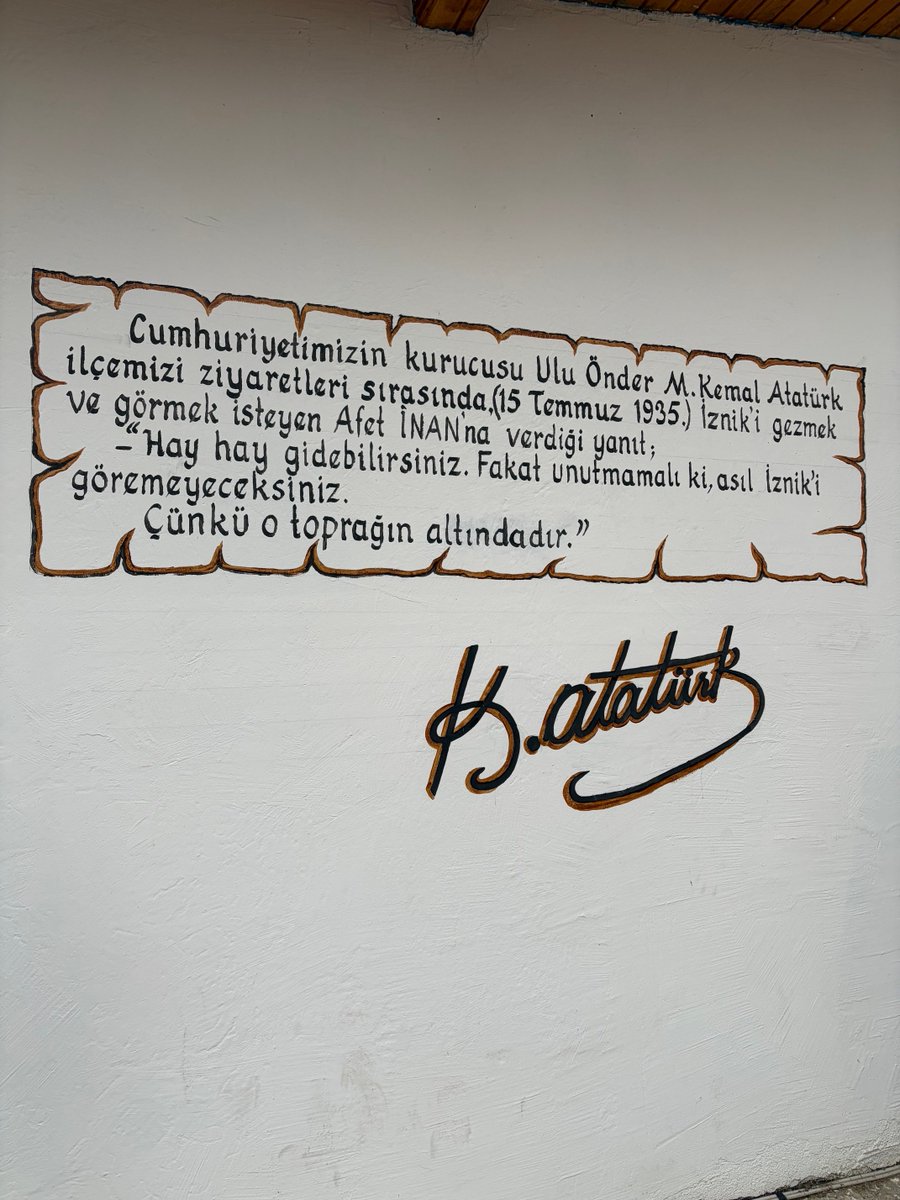 Cumhuriyetimizin kurucusu Ulu Önder M.Kemal Atatürk
ilçemizi ziyaretleri sırasında,(15 Temmuz 1935.) İznik'i gezmek
ve görmek isteyen Afet İNAN'na verdiği yanıt;
-"Hay hay gidebilirsiniz. Fakat unutmamalı ki, asıl İznik'i
göremeyeceksiniz.
Çünkü o toprağın altındadır."
K.atatürk